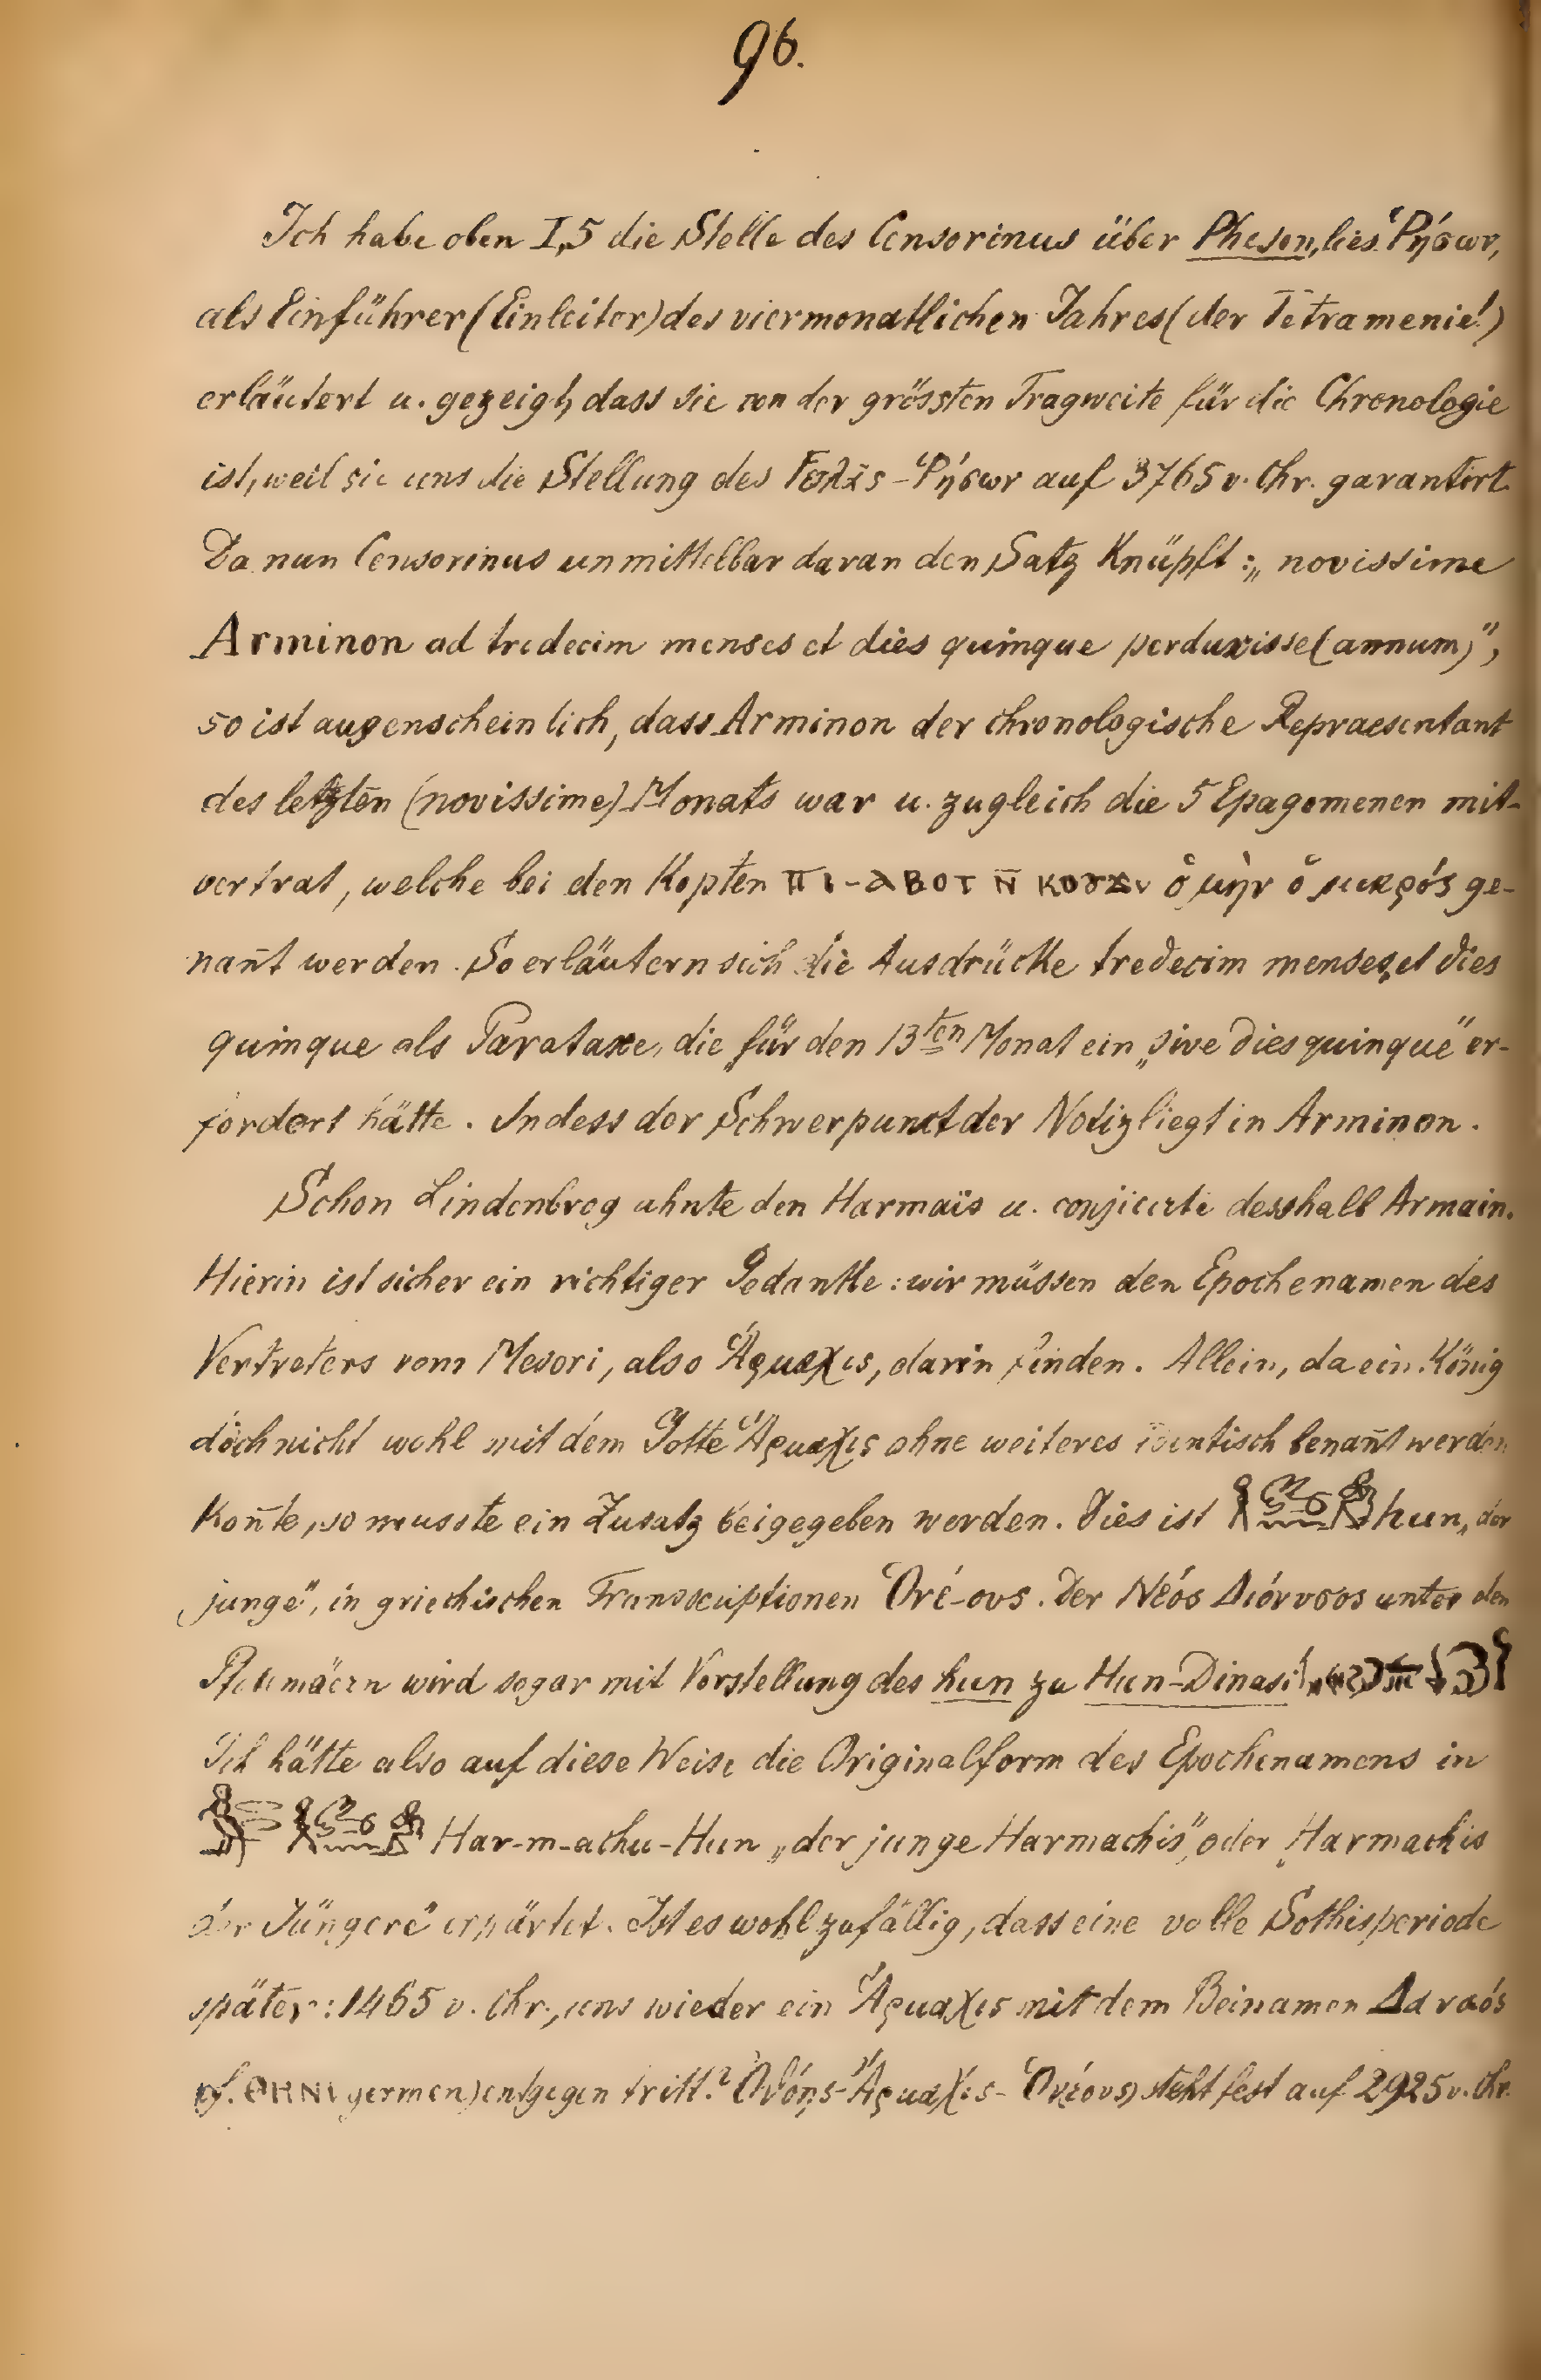 96.
Ich habe oben I,5 die Stelle des Censorinus über Pheson, lies Ῥήσων,
als Einführer (Einleiter) des viermonatlichen Jahres (der Tetramenie!)
erläutert u. gezeigt, dass sie von der grössten Tragweite für die Chronologie
ist, weil sie uns die Stellung des -Ῥήσων auf 3765 v. Chr. garantirt.
Da nun Censorinus unmittelbar daran den Satz Knüpft: „novissime
Arminon ad tredecim menses et dies quinque perduxisse (annum)",
so ist augenscheinlich, dass Arminon der chronologische Repraesentant
des letzten (novissime) Monats war u. zugleich die 5 Epagomenen mit-
vertrat, welche bei den Kopten ⲡⲓ-ⲁⲃⲟⲧ ⲛ̄ ⲕⲟⲩϫⲓ ὁ μὴν ὁ μικρός ge-
nañt werden. So erläutern sich die Ausdrücke tredecim menses, et dies
quinque als Parataxe, die für den 13ten Monat ein „sive dies quinque" er-
fordert hätte. Indess der Schwerpunct der Notiz liegt in Arminon.
Schon Lindenbrog ahnte den Harmaïs u. conjicirte desshalb Armain.
Hierin ist sicher ein richtiger Gedanke: wir müssen den Epochenamen des
Vertreters vom Mesori, also Ἅρμαχις, darin finden. Allein, da ein König
doch nicht wohl mit dem Gotte Ἅρμαχις ohne weiteres identisch benañt werden
koñte, so musste ein Zusatz beigegeben werden. Dies ist hun, „der
junge", in griechischen Transscriptionen Ὀνέ-ους. Der Νέος Διόνυσος unter den
Ptolemäern wird sogar mit Vorstellung des hun zu Hun-Dinasi
Ich hätte also auf diese Weise die Originalform des Epochenamens in
Har-m-achu-Hun „der junge Harmachis", oder „Harmachis
der Jüngere" erhärtet. Ist es wohl zufällig, dass eine volle Sothisperiode
später: 1465 v. Chr., uns wieder ein Ἅρμαχις mit dem Beinamen Δαναός
germen) entgegen tritt? -Ἅρμαχις- steht fest auf 2925 v. Chr.